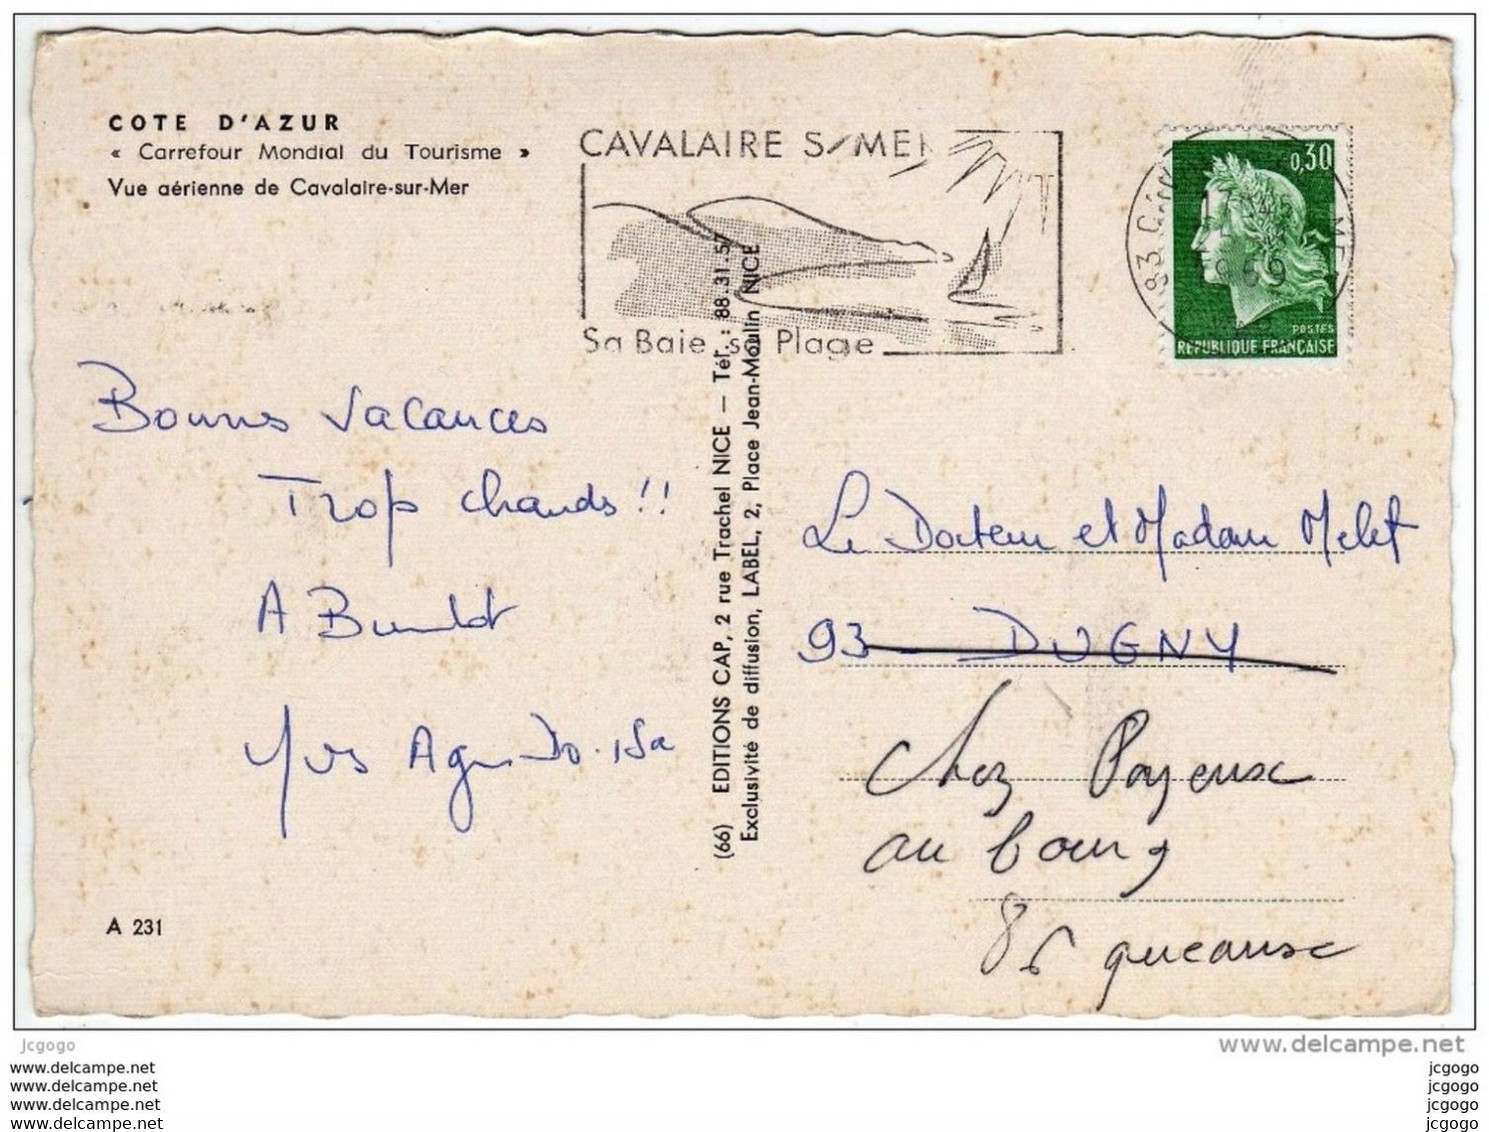 COTE D'AZUR
« Carrefour Mondial du Tourisme »
Vue aérienne de Cavalaire-sur-Mer
CAVALAIRE S/MER
Sa Baie sa Plage
0,30
POSTES
REPUBLIQUE FRANÇAISE
83
1969
Bonnes Vacances
Trop chauds !!
A Bientot
Yves Agnès
(66) EDITIONS CAP, 2 rue Trachel NICE — Tél. : 88.31.57
Exclusivité de diffusion, LABEL, 2, Place Jean-Moulin NICE
Le Docteur et Madame Melet
93 DUGNY
Chez Payeux
au bourg
86 queaux
A 231
jcgogo
www.delcampe.net
www.delcampe.net
www.delcampe.net
www.delcampe.net
©www.delcampe.net
jcgogo
jcgogo
jcgogo
jcgogo